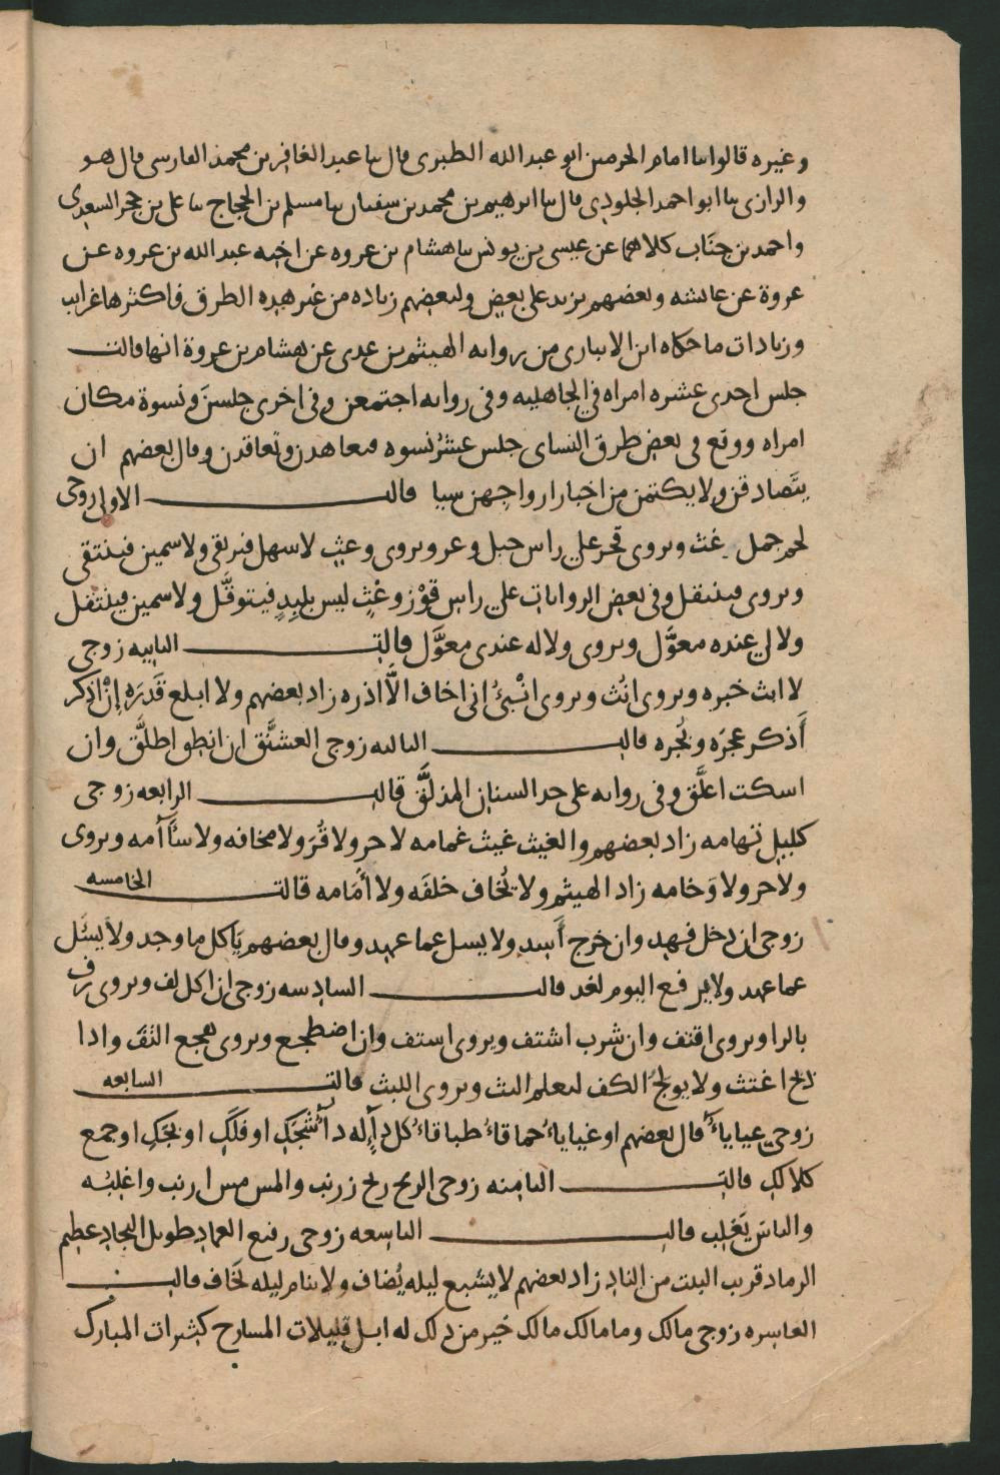 وغيره قالوا سا امام الحرمين ابو عبد الله الطبرى قال سا عبد الغافر بن محمد الفارسى قال هو
والرازى سا ابو احمد الجلودى قال سا ابرهيم بن محمد بن سفيان سا مسلم بن الحجاج سا على بن حجر السعدى
واحمد بن جناب كلاهما عن عيسى بن يونس سا هشام بن عروه عن اخيه عبد الله بن عروه عن
عروة عن عائشه وبعضهم يزيد على بعض ولبعضهم زياده من غير هذه الطرق فاكثرها غرايب
وزيادات ما حكاه ابن الانبارى من روايه الهيثم بن عدى عن هشام بن عروة انها قالت
جلس احدى عشره امراه في الجاهليه وفى روايه اجتمعن وفى اخرى جلسن ونسوة مكان
امراه ووقع فى بعض طرق النساى جلس عشر نسوه فتعاهدن وتعاقدن وقال بعضهم ان
يتصادقن ولا يكتمن من اخبار ازواجهن شيا قالت الاولى زوجى
لحم جمل غث ويروى قحر على راس جبل وعر ويروى وعث لا سهل فيرتقى ولا سمين فينتقى
ويروى فينتقل وفى بعض الروايات على راس قوز وعث ليس بلبد فيتوقل ولا سمين فينتقل
ولا لى عنده معول ويروى ولا له عندى معول قالت الثانيه زوجى
لا ابث خبره ويروى انث ويروى انبئ انى اخاف الا اذره زاد بعضهم ولا ابلغ قدره إن اذكر
أذكر عجره وبجره قالت الثالثه زوجى العشنق ان انطق اطلق وان
اسكت اعلق وفى روايه على حد السنان المذلق قالت الرابعه زوجى
كليل تهامه زاد بعضهم والغيث غيث غمامه لا حر ولا قر ولا مخافه ولا سآمه ويروى
ولا حر ولا وخامه زاد الهيثم ولا يخاف خلفه ولا أمامه قالت الخامسه
زوجى ان دخل فهد وان خرج أسد ولا يسل عما عهد وقال بعضهم ياكل ما وجد ولا يسئل
عما عهد ولا يرفع اليوم لغد قالت السادسه زوجى ان اكل لف ويروى رف
بالرا ويروى اقتف وان شرب اشتف ويروى استف وان اضطجع ويروى هجع التف واذا
ذبح اغتث ولا يولج الكف ليعلم البث ويروى اللبث قالت السابعه
زوجى عياياء قال بعضهم او غياياء حماقاء طباقاء كل داء له داء شجك او فلك او بجك او جمع
كلا لك قالت الثامنه زوجى الريح ريح زرنب والمس مس ارنب واغلبه
والناس يغلب قالت التاسعه زوجى رفيع العماد طويل النجاد عظيم
الرماد قريب البيت من الناد زاد بعضهم لا يشبع ليله يضاف ولا ينام ليله يخاف قالت
العاشره زوجى مالك وما مالك مالك خير من ذلك له ابل قليلات المسارح كثيرات المبارك